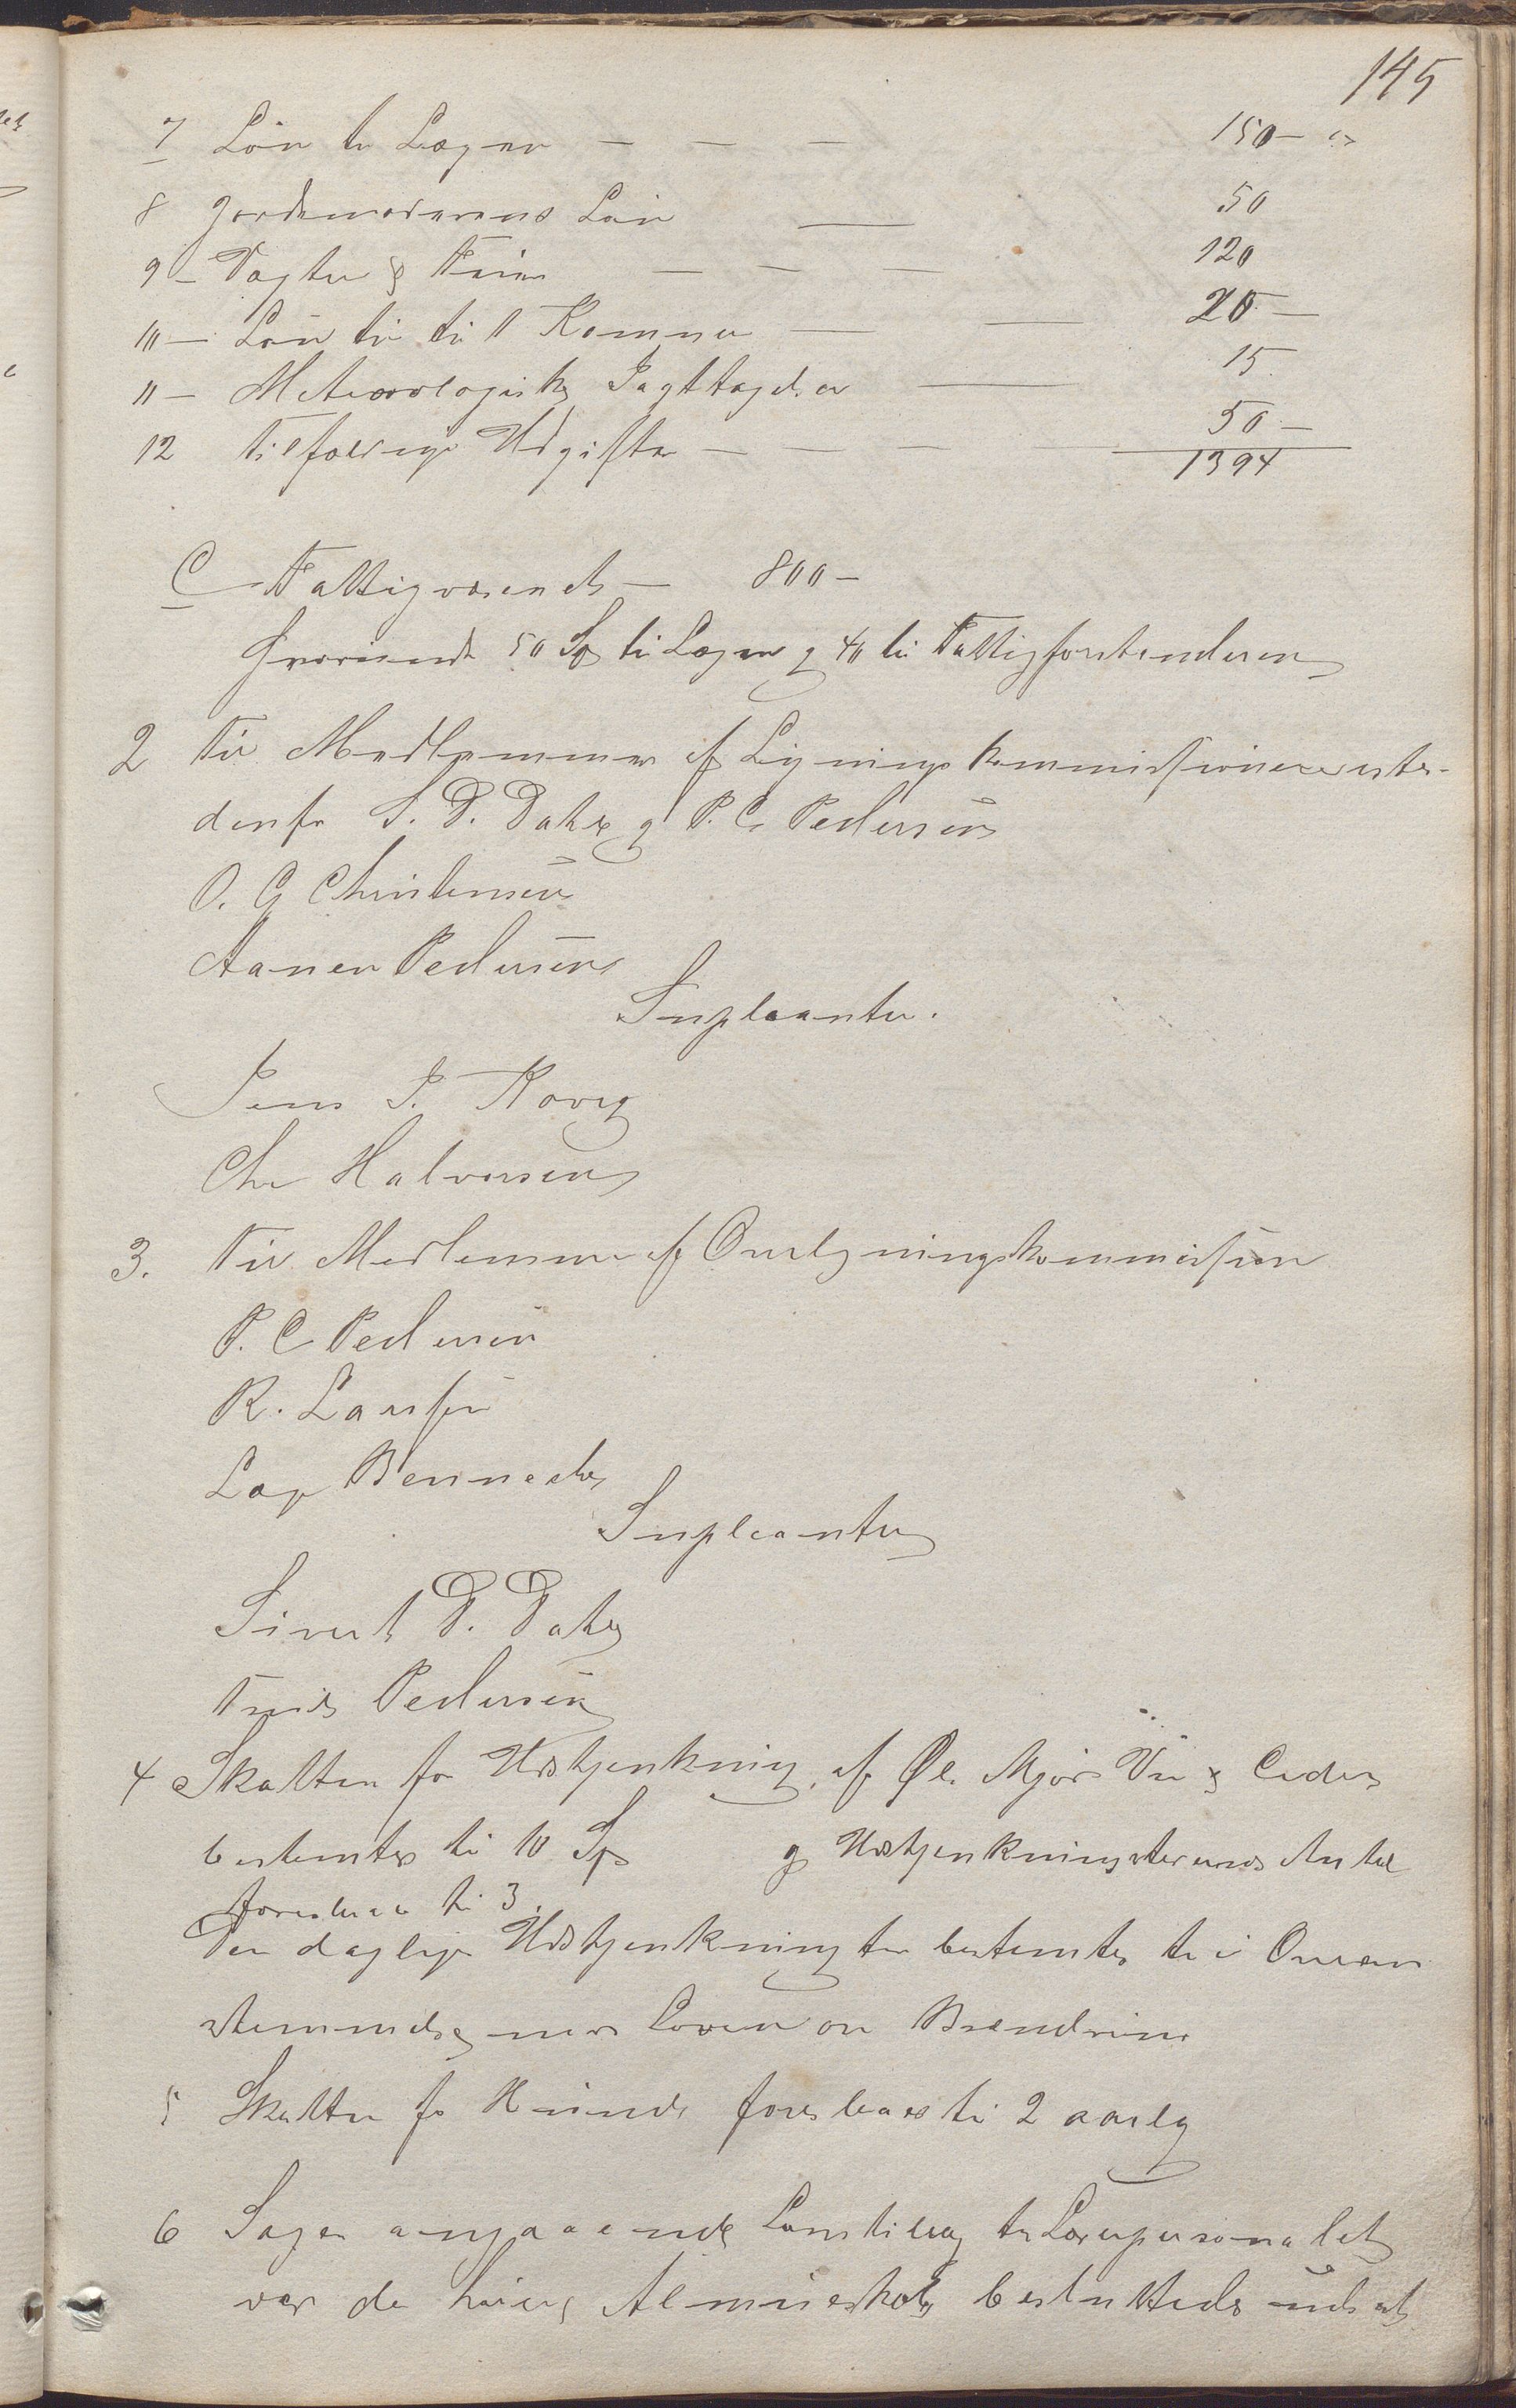 145
7 Løn til Lægen — — — 150 — "
8 Jordemoderens Løn — 50
9 — Vagter & Feier — — — 120
10 — Løn til til Kæmner — — 20 —
11 — Meteorologiske Iagttagelser — 15
12 Tilfældige Udgifter — — — 50 —
1394
C Fattigvæsenet — 800 —
hvoriiandt 50 Sp til Lægen og 40 til Fattigforstanderen
2 Til Medlemmer af Ligningskommissionen uds-
denfor S. D. Dahl og P. C. Pedersen
O. G Christensen
Aanen Pedersen
Supleanter.
Jens J. Koren
Chr Halvorsen
3. Til Medlemmer af Overligningskommission
P. C Pedersen
R. Larssen
Læge Benneche
Supleanter
Sivert D. Dahl
Pedersen
4 Skatten for Udskjenkning af Øl. Mjød Vin & Cider
bestemtes til 10 Sp og Udskjenkningsstedernes Antal
foreslaaes til 3.
Den daglige Udskjenkning bestemtes til i Overens
stemmelse med Loven om Brændeviin
5 Skatten for Hunde foreslaaes til 2 aarlig
6 Sagen angaaende Lønstillæg til Lærerpersonalet
ved den høiere Almueskole besluttedes udsat